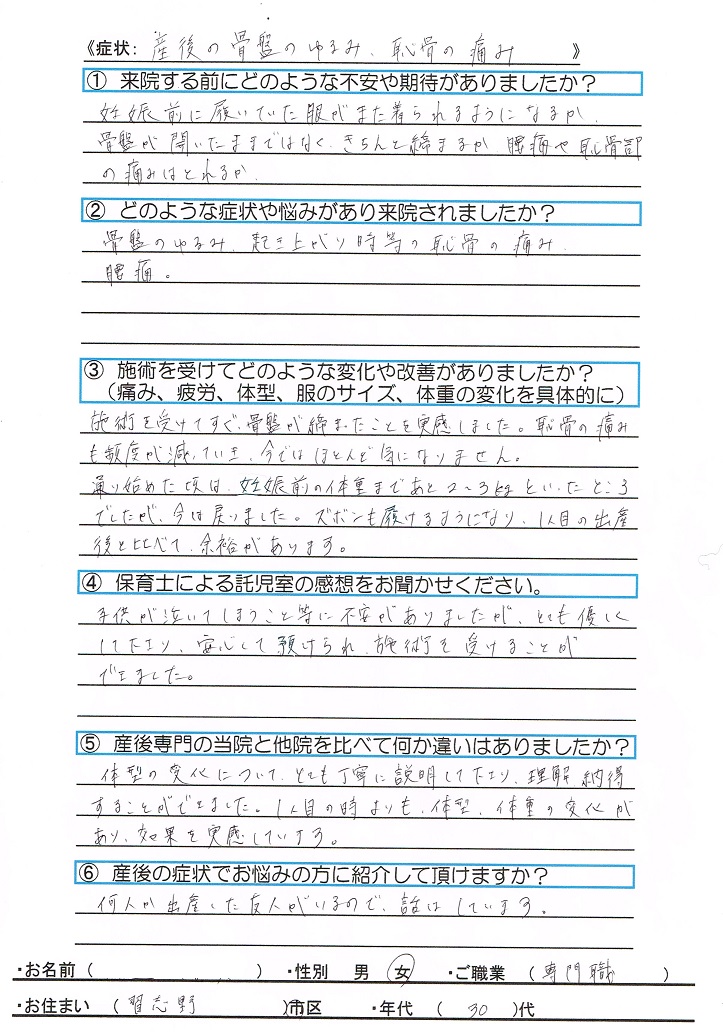 《症状: 産後の骨盤のゆるみ、恥骨の痛み 》
① 来院する前にどのような不安や期待がありましたか？
妊娠前に履いていた服がまた着られるようになるか、
骨盤が開いたままではなく、きちんと締まるか、腰痛や恥骨部
の痛みはとれるか、
② どのような症状や悩みがあり来院されましたか？
骨盤のゆるみ、起き上がり時等の恥骨の痛み、
腰痛。
③ 施術を受けてどのような変化や改善がありましたか？
（痛み、疲労、体型、服のサイズ、体重の変化を具体的に）
施術を受けてすぐ、骨盤が締まったことを実感しました。恥骨の痛み
も頻度が減っていき、今ではほとんど気になりません。
通り始めた頃は、妊娠前の体重まであと2〜3kgといったところ
でしたが、今は戻りました。ズボンも履けるようになり、1人目の出産
後と比べて、余裕があります。
④ 保育士による託児室の感想をお聞かせください。
子供が泣いてしまうこと等に不安がありましたが、とても優しく
して下さり、安心して預けられ、施術を受けることが
できました。
⑤ 産後専門の当院と他院を比べて何か違いはありましたか？
体型の変化について、とても丁寧に説明して下さり、理解、納得
することができました。1人目の時よりも、体型、体重の変化が
あり、効果を実感しています。
⑥ 産後の症状でお悩みの方に紹介して頂けますか？
何人か出産した友人がいるので、話はしています。
・お名前（ ）・性別 男 女 ・ご職業（専門職 ）
・お住まい（習志野 ）市区 ・年代（ 30 ）代